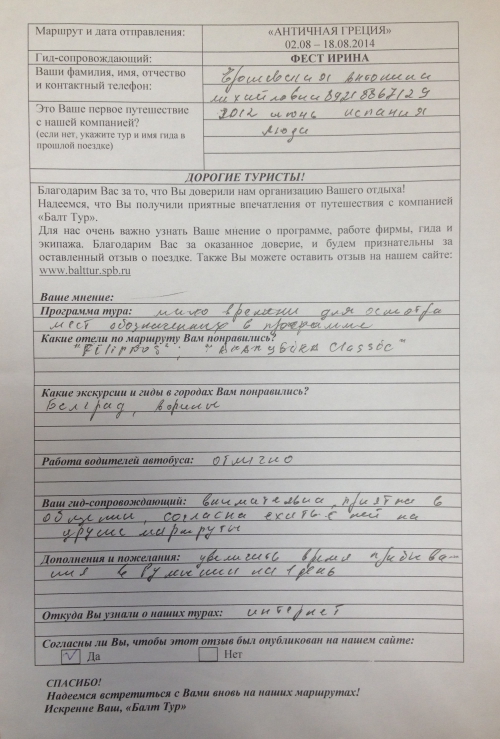 Маршрут и дата отправления: «АНТИЧНАЯ ГРЕЦИЯ»
02.08 – 18.08.2014
Гид-сопровождающий: ФЕСТ ИРИНА
Ваши фамилия, имя, отчество
и контактный телефон:
Антонина
Михайловна
Это Ваше первое путешествие
с нашей компанией?
(если нет, укажите тур и имя гида в
прошлой поездке)
2012 июнь испания
люди
ДОРОГИЕ ТУРИСТЫ!
Благодарим Вас за то, что Вы доверили нам организацию Вашего отдыха!
Надеемся, что Вы получили приятные впечатления от путешествия с компанией
«Балт Тур».
Для нас очень важно узнать Ваше мнение о программе, работе фирмы, гида и
экипажа. Благодарим Вас за оказанное доверие, и будем признательны за
оставленный отзыв о поездке. Также Вы можете оставить отзыв на нашем сайте:
www.balttur.spb.ru
Ваше мнение:
Программа тура: мало времени для осмотра
мест обозначенных в программе
Какие отели по маршруту Вам понравились?
"Filippos", Classic"
Какие экскурсии и гиды в городах Вам понравились?
Белград,
Работа водителей автобуса: отлично
Ваш гид-сопровождающий: внимательна, приятна в
общении, согласна ехать с ней на
другие маршруты
Дополнения и пожелания: увеличить время пребыва-
ния в Румынии на 1 день
Откуда Вы узнали о наших турах: интернет
Согласны ли Вы, чтобы этот отзыв был опубликован на нашем сайте:
Да Нет
СПАСИБО!
Надеемся встретиться с Вами вновь на наших маршрутах!
Искренне Ваш, «Балт Тур»